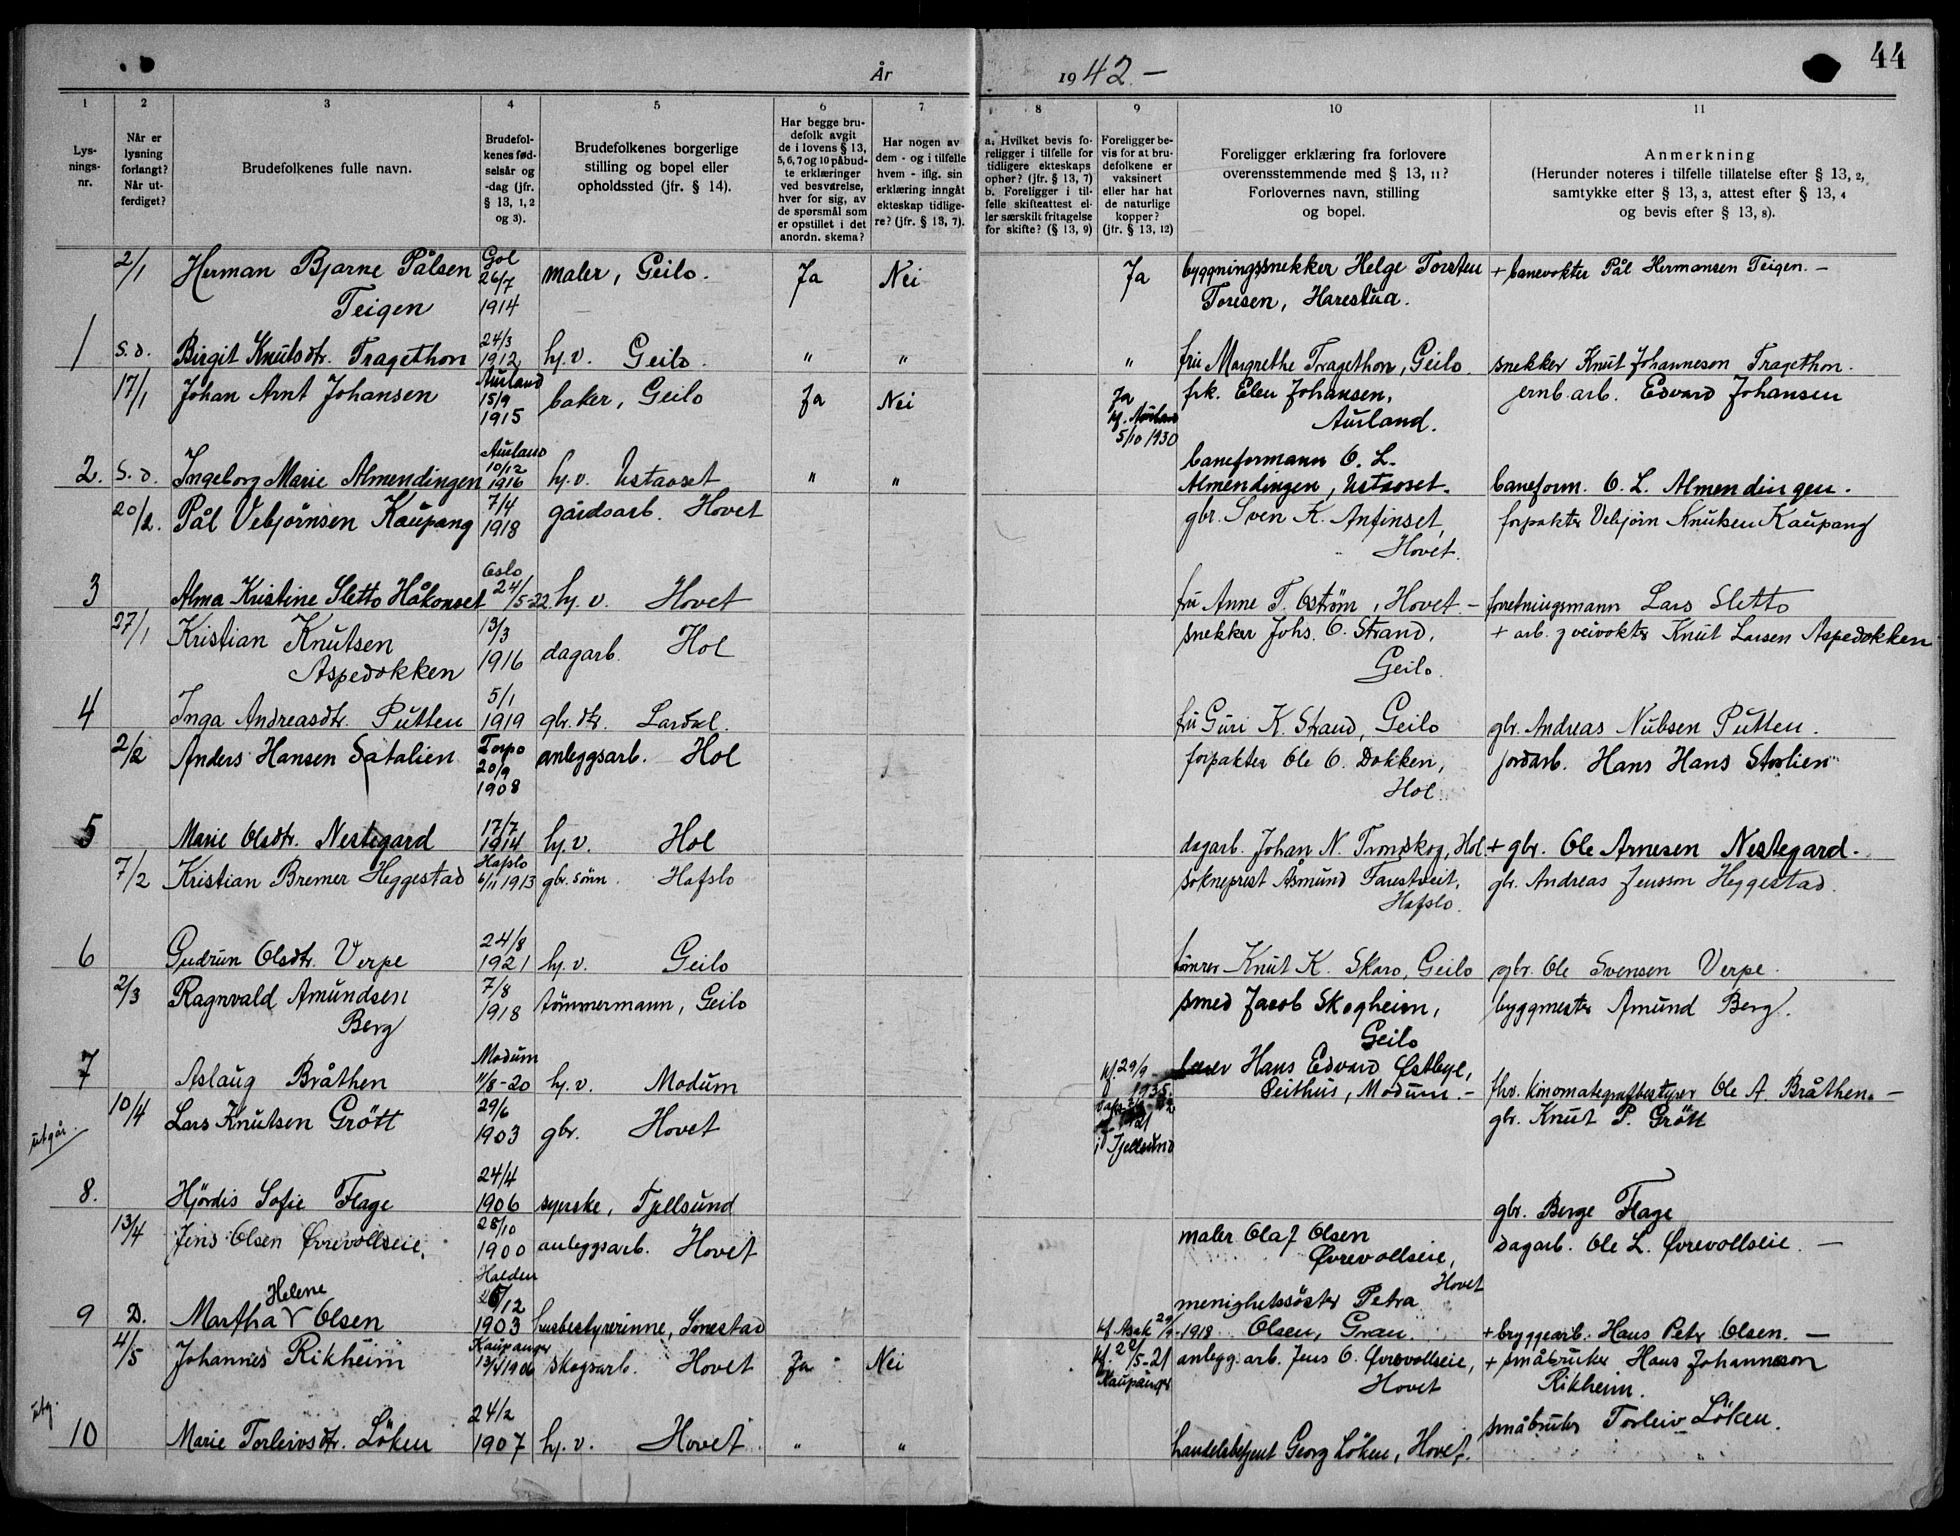 44
År 1942 –
1 2 3 4 5 6 7 8 9 10 11
Lysnings-nr.
Når er lysning forlangt? Når utferdiget?
Brudefolkenes fulle navn.
Brudefolkenes fødselsår og -dag (jfr. § 13, 1, 2 og 3).
Brudefolkenes borgerlige stilling og bopel eller opholdssted (jfr. § 14).
Har begge brudefolk avgit de i lovens § 13, 5, 6, 7 og 10 påbudte erklæringer ved besvarelse, hver for sig, av de spørsmål som er opstillet i det anordn. skema?
Har nogen av dem - og i tilfelle hvem - iflg. sin erklæring inngått ekteskap tidligere? (jfr. § 13, 7).
a. Hvilket bevis foreligger i tilfelle for tidligere ekteskaps ophør? (jfr. § 13, 7) b. Foreligger i tilfelle skifteattest eller særskilt fritagelse for skifte? (§ 13, 9)
Foreligger bevis for at brudefolkene er vaksinert eller har hat de naturlige kopper? (jfr. § 13, 12)
Foreligger erklæring fra forlovere overensstemmende med § 13, 11? Forlovernes navn, stilling og bopel.
Anmerkning (Herunder noteres i tilfelle tillatelse efter § 13, 2, samtykke efter § 13, 3, attest efter § 13, 4 og bevis efter § 13, 8).
2/1 Herman Bjarne Pålsen Teigen Gol 26/7 1914 maler, Geilo. Ja Nei Ja byggningssnekker Helge Torsten Toresen, Harestua. + banevokter Pål Hermansen Teigen. –
1 S.d. Birgit Knutsdtr. Tragethon 24/3 1912 hj.v. Geilo. " " " fru Margrethe Tragethon, Geilo. snekker Knut Johanneson Tragethon.
17/1 Johan Arnt Johansen Aurland 15/9 1915 baker, Geilo Ja Nei Ja kf. Aurland 5/10 1930 frk. Elen Johansen, Aurland. jernb.arb. Edvard Johansen
2. S.d. Ingeborg Marie Almendingen Aurland 10/12 1916 hj.v. Ustaoset " " baneformann O. L. Almendingen, Ustaoset. baneform. O. L. Almendingen.
20/2. Pål Vebjørnsen Kaupang 7/4 1918 gårdsarb. Hovet gbr. Sven K. Anfinset, Hovet. forpakter Vebjørn Knutsen Kaupang
3 Alma Kristine Sletto Håkonset Oslo 24/5-22. hj.v. Hovet fru Anne T. Østrøm, Hovet – forretningsmann Lars Sletto
27/1 Kristian Knutsen Aspedokken 13/3 1916 dagarb. Hol snekker Johs. O. Strand, Geilo. + arb. veivokter Knut Larsen Aspedokken
4 Inga Andreasdtr. Putten 5/1 1919 gbr.dtr. Lardal. fru Guri K. Strand, Geilo gbr. Andreas Nubsen Putten.
2/2 Anders Hansen Satalien Torpo 20/9 1908 anleggsarb. Hol forpakter Ole O. Dokken, Hol. jordarb. Hans Hans Storlien
5 Marie Olsdtr. Nestegard 17/7 1914 hj.v. Hol dagarb. Johan N. Trondskog, Hol + gbr. Ole Arnesen Nestegard.
7/2 Kristian Bremer Heggestad Hafslo 6/11 1913 gbr.sønn. Hafslo sokneprest Åsmund Farestveit, Hafslo. gbr. Andreas Jensson Heggestad.
6 Gudrun Olsdtr. Verpe 24/8 1921 hj.v. Geilo Knut K. Skaro, Geilo gbr. Ole Svensen Verpe.
2/3 Ragnvald Amundsen Berg 7/8 1918 tømmermann, Geilo smed Jacob Skogheim, Geilo byggmester Amund Berg.
7 Aslaug Bråthen Modum 11/8-20 hj.v. Modum kf. 29/9 1935. Hans Edvard Østbye, Geithus, Modum. – fhv. kinomatografbestyrer Ole A. Bråthen. –
utgår. 10/4 Lars Knutsen Grøtt 29/6 1903 gbr. Hovet i Tjellsund gbr. Knut P. Grøtt
8. Hjördis Sofie Flage 24/4 1906 syerske, Tjellsund gbr. Berge Flage
13/4 Jens Olsen Øvrevollseie, 28/10 1900 anleggsarb. Hovet maler Olaf Olsen Øvrevollseie, Hovet dagarb. Ole L. Øvrevollseie. –
9 D. Martha Helene Olsen Halden 12 1903 husbestyrerinne, kf. Asak 29/9-1918 menighetssøster Petra Olsen, Gran. + bryggearb. Hans Petr Olsen. –
4/5 Johannes Rikheim Kaupanger 1906 skogsarb. Hovet Ja Nei kf. 22/5-21 Kaupanger anlegg.arb. Jens O. Øvrevollseie, Hovet + småbruker Hans Johanneson Rikheim.
utg. 10 Marie Torleivsdtr. Löken 24/2 1907 hj.v. Hovet " " handelsbetjent Georg Löken, Hovet. småbruker Torleiv Löken.